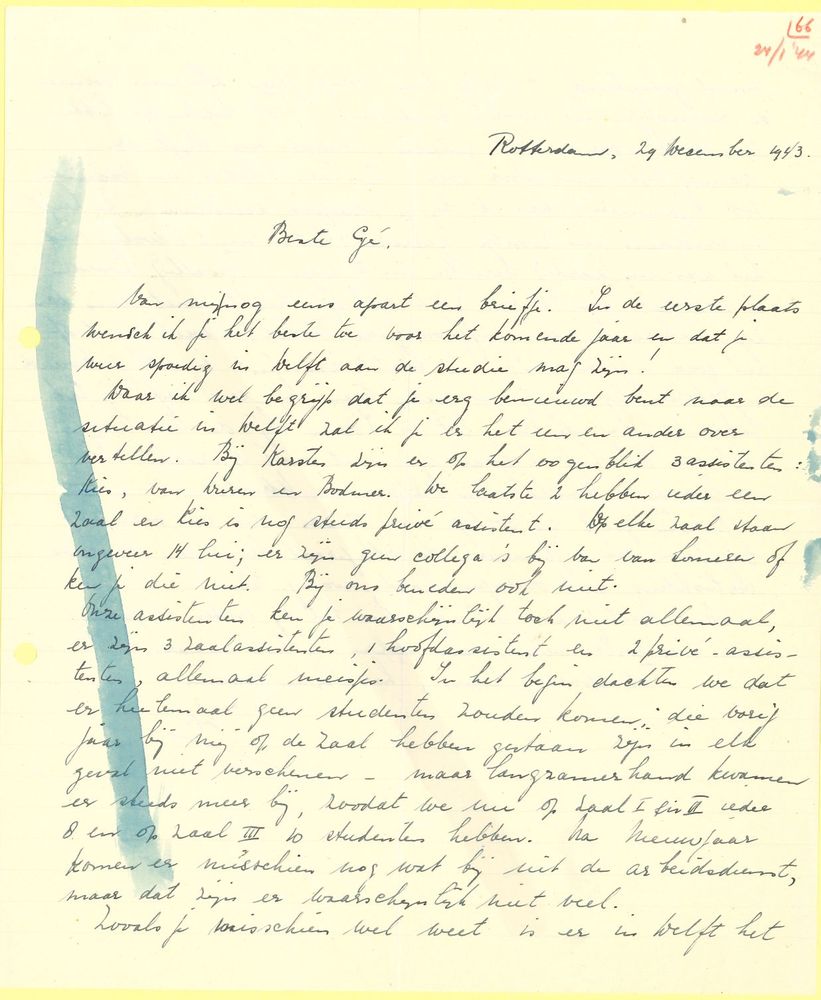 166
24/1 '44
Rotterdam, 29 December 1943.
Beste Gé,
Van mij nog eens apart een briefje. In de eerste plaats
wensch ik je het beste toe voor het komende jaar en dat je
weer spoedig in Delft aan de studie mag zijn!
Daar ik wel begrijp dat je erg benieuwd bent naar de
situatie in Delft zal ik je er het een en ander over
vertellen. Bij Karsten zijn er op het oogenblik 3 assistenten:
Kies, van Duren en Bodmer. De laatste 2 hebben ieder een
zaal en Kies is nog steeds privé assistent. Op elke zaal staan
ongeveer 14 lui; er zijn geen collega's bij van van Someren of
ken je die niet. Bij ons beneden ook niet.
Onze assistenten ken je waarschijnlijk toch niet allemaal,
er zijn 3 zaalassistenten, 1 hoofdassistent en 2 privé-assis-
tenten, allemaal meisjes. In het begin dachten we dat
er heelemaal geen studenten zouden komen; die vorig
jaar bij mij op de zaal hebben gestaan zijn in elk
geval niet verschenen - maar langzamerhand kwamen
er steeds meer bij, zoodat we nu op zaal I en II ieder
8 en op zaal III 10 studenten hebben. Na Nieuwjaar
komen er misschien nog wat bij uit de arbeidsdienst,
maar dat zijn er waarschijnlijk niet veel.
Zooals je misschien wel weet is er in Delft het